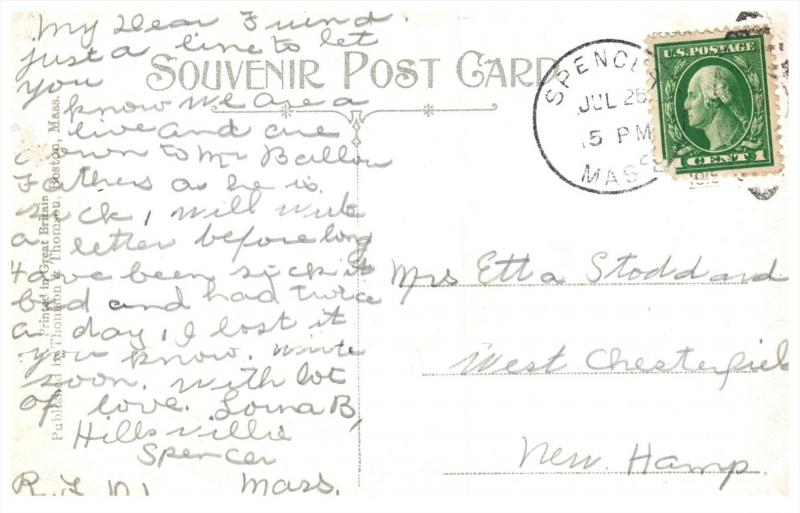 My Dear Friend.
just a line to let
you
know we are a
live and are
down to Mr Ballou
Fathers as he is
sick, I will write
a letter before long
Have been sick it
bad and had twice
a day, I lost it
you know. write
soon. With lot
of love. Lorna B,
Hillsville
Spencer
R.F.D.1 Mass.
SOUVENIR POST CARD
Printed in Great Britain
Published by Thomson & Thomson, Boston, Mass.
SPENCER
JUL 26
5 PM
MASS
U.S. POSTAGE
1 CENT 1
Mrs Etta Stoddard
West Chesterfield
New. Hamp.